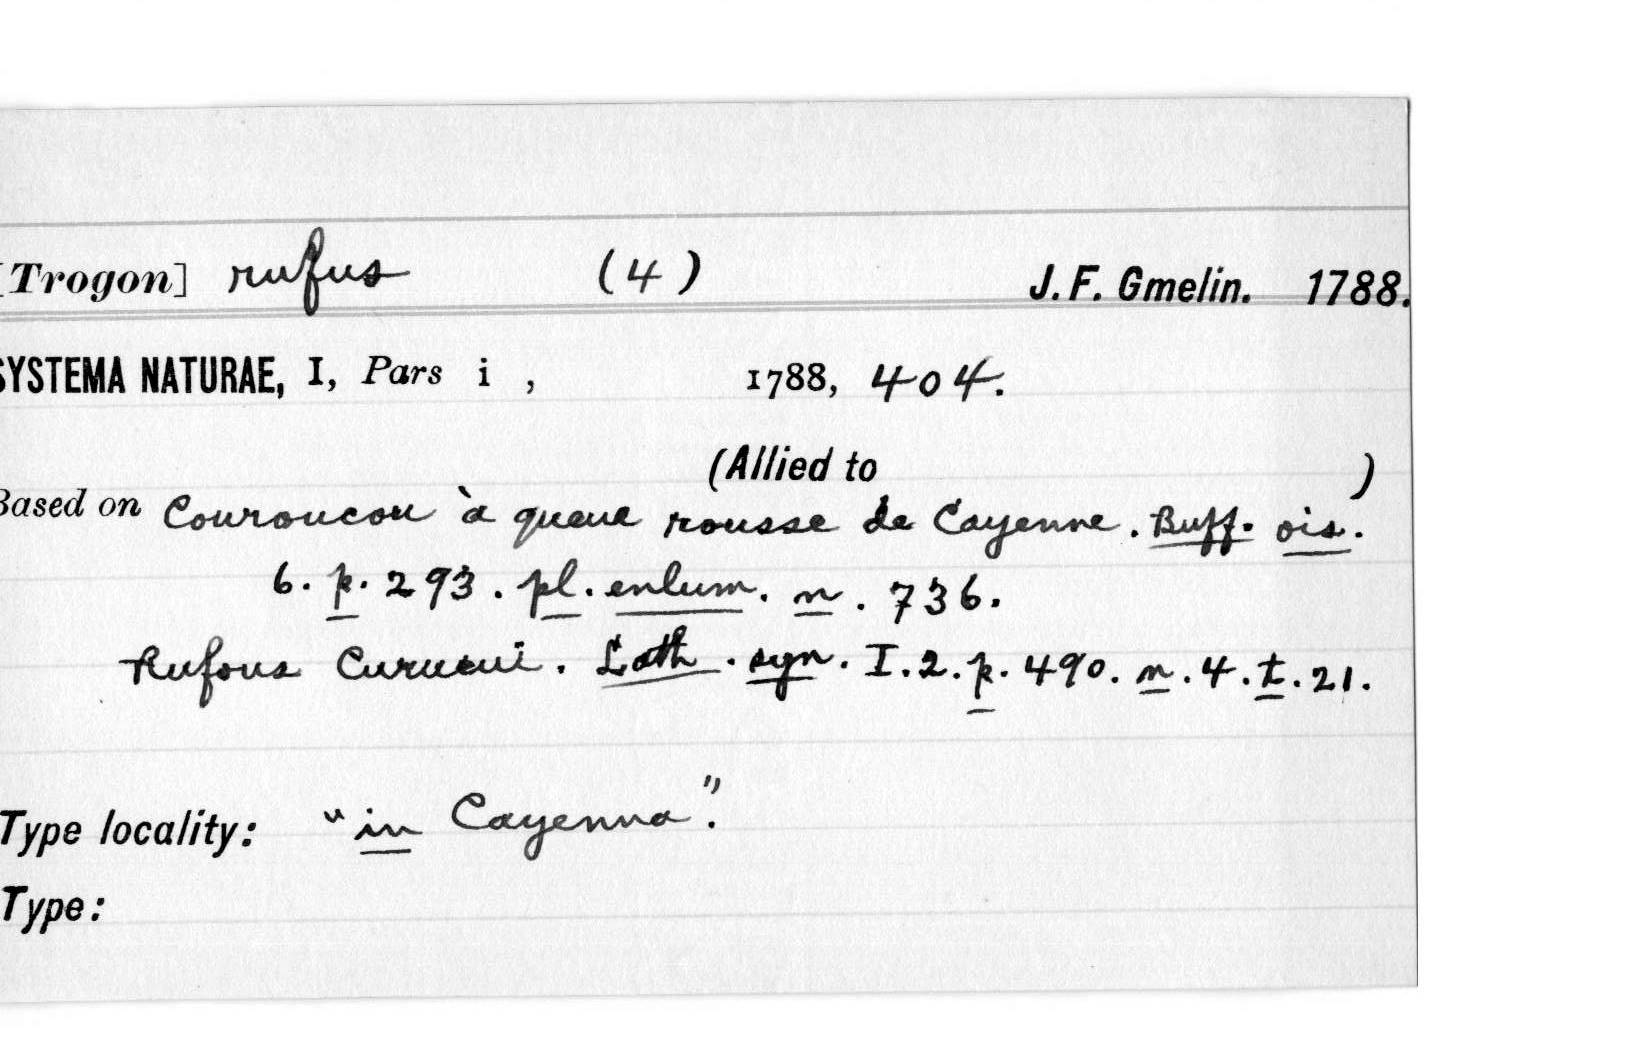 [Trogon] rufus (4) J. F. Gmelin. 1788.
SYSTEMA NATURAE, I, Pars i , 1788, 404.
(Allied to )
Based on Couroucou à queue rousse de Cayenne. Buff. ois.
6. p. 293. pl. enlum. n. 736.
Rufous Curucui. Lath. syn. I. 2. p. 490. n. 4. t. 21.
Type locality: "in Cayenna".
Type: